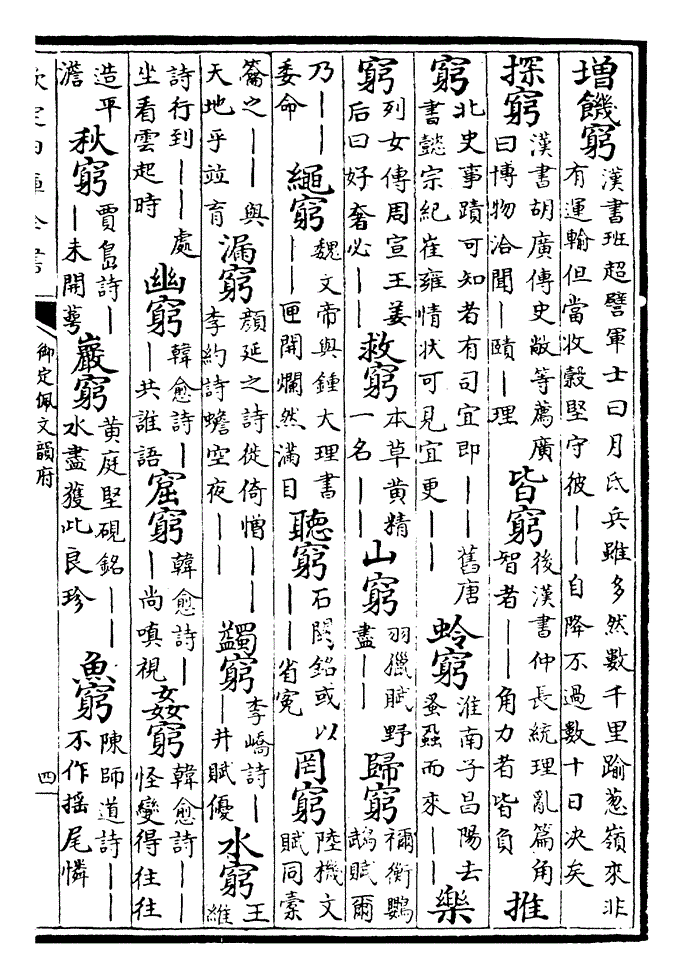 增饑窮漢書班超譬軍士曰月氏兵雖多然數千里踰葱嶺來非有運輸但當收穀堅守彼――自降不過數十日决矣
探窮漢書胡廣傳史敞等薦廣曰博物洽聞―賾―理 皆窮後漢書仲長統理亂篇角智者――角力者皆負 推
窮北史事蹟可知者有司宜即――舊唐書懿宗紀崔雍情狀可見宜更―― 蛉窮淮南子昌陽去蚤蝨而來―― 樂
窮列女傳周宣王姜后曰好奢必―― 救窮本草黄精一名―― 山窮羽獵賦野盡―― 歸窮禰衡鸚鵡賦爾
乃――委命 繩窮魏文帝與鍾大理書――匣開爛然滿目 聽窮石闕銘或以――省寃 罔窮陸機文賦同橐
籥之――與天地乎竝育 漏窮顔延之詩徙倚憎――李約詩蟾空夜―― 蠲窮李嶠詩――井賦優 水窮王維
詩行到――處坐看雲起時 幽窮韓愈詩――共誰語 窟窮韓愈詩――尚嗔視 姦窮韓愈詩――怪變得往往
造平澹 秋窮賈島詩――未開蕚 巖窮黄庭堅硯銘――水盡獲此良珍 魚窮陳師道詩――不作揺尾憐
欽定四庫全書
御定佩文韻府
四